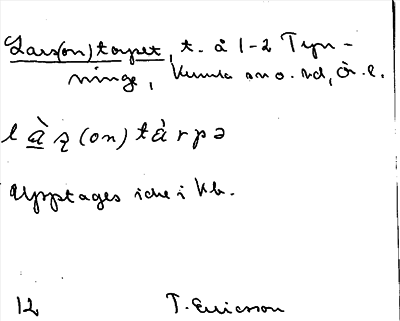 Lars(on)torpet, t. å 1-2 Tyn-
ninge, Kumla sn o. hd, Ör. l.
l à̱ ʂ (on) t à r p ə
Upptages icke i Kb.
12 T. Ericsson